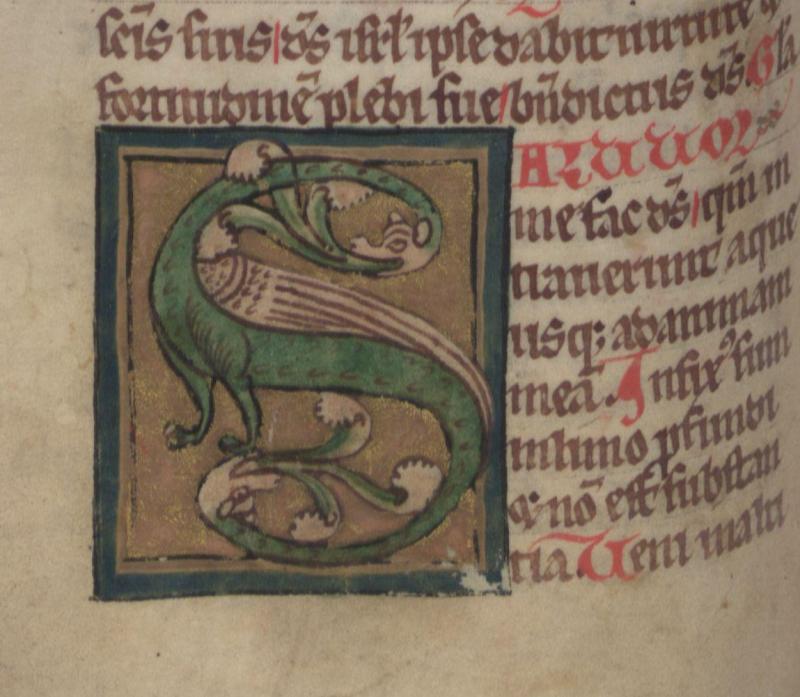 scīs suis ds̄ isrl̄ ipse dabit uirtutē ⁊
fortitudinē plebi sue bn̄dictus ds̄. Gl̄a
SALUUM
me fac ds̄ qm̄ in
trauerunt aque
usq; ad animam
meā. Infixꝰ sum
in limo ꝓfundi
⁊ nō est substan
tia. Ueni in alti